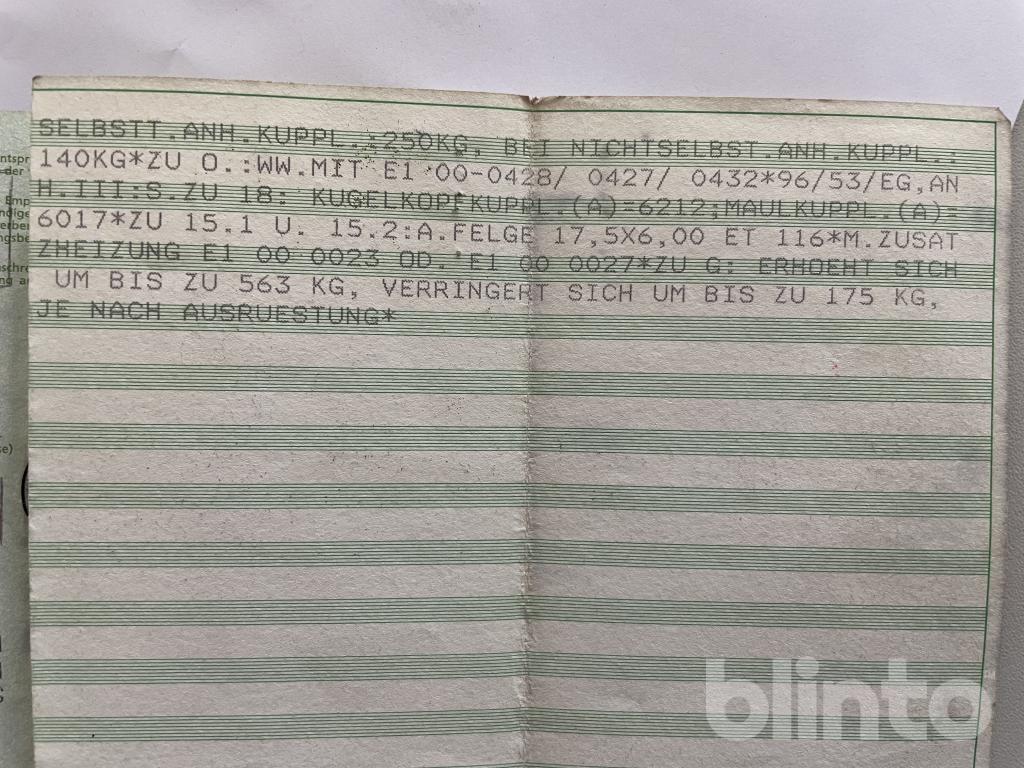 SELBSTT.ANH.KUPPL.:250KG, BEI NICHTSELBST.ANH.KUPPL.:
140KG*ZU O.:WW.MIT E1 00-0428/ 0427/ 0432*96/53/EG,AN
H.III:S.ZU 18: KUGELKOPFKUPPL.(A)=6212;MAULKUPPL.(A)=
6017*ZU 15.1 U. 15.2:A.FELGE 17,5X6,00 ET 116*M.ZUSAT
ZHEIZUNG E1 00 0023 OD. E1 00 0027*ZU G: ERHOEHT SICH
UM BIS ZU 563 KG, VERRINGERT SICH UM BIS ZU 175 KG,
JE NACH AUSRUESTUNG*
blinto